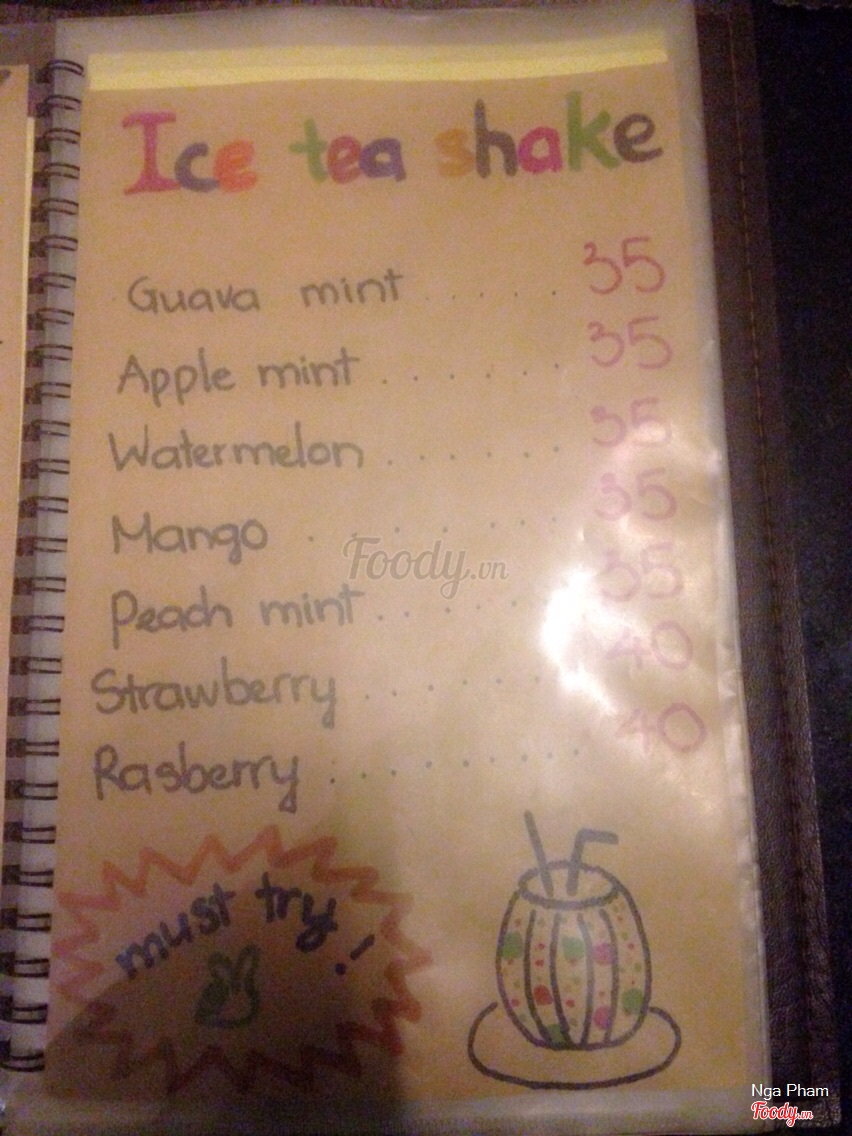 Ice tea shake
Guava mint ...... 35
Apple mint ....... 35
Watermelon ....... 35
Mango ....... 35
Peach mint ....... 35
Strawberry ....... 40
Rasberry ......... 40
must try!
Foody.vn
Nga Pham
Foody.vn